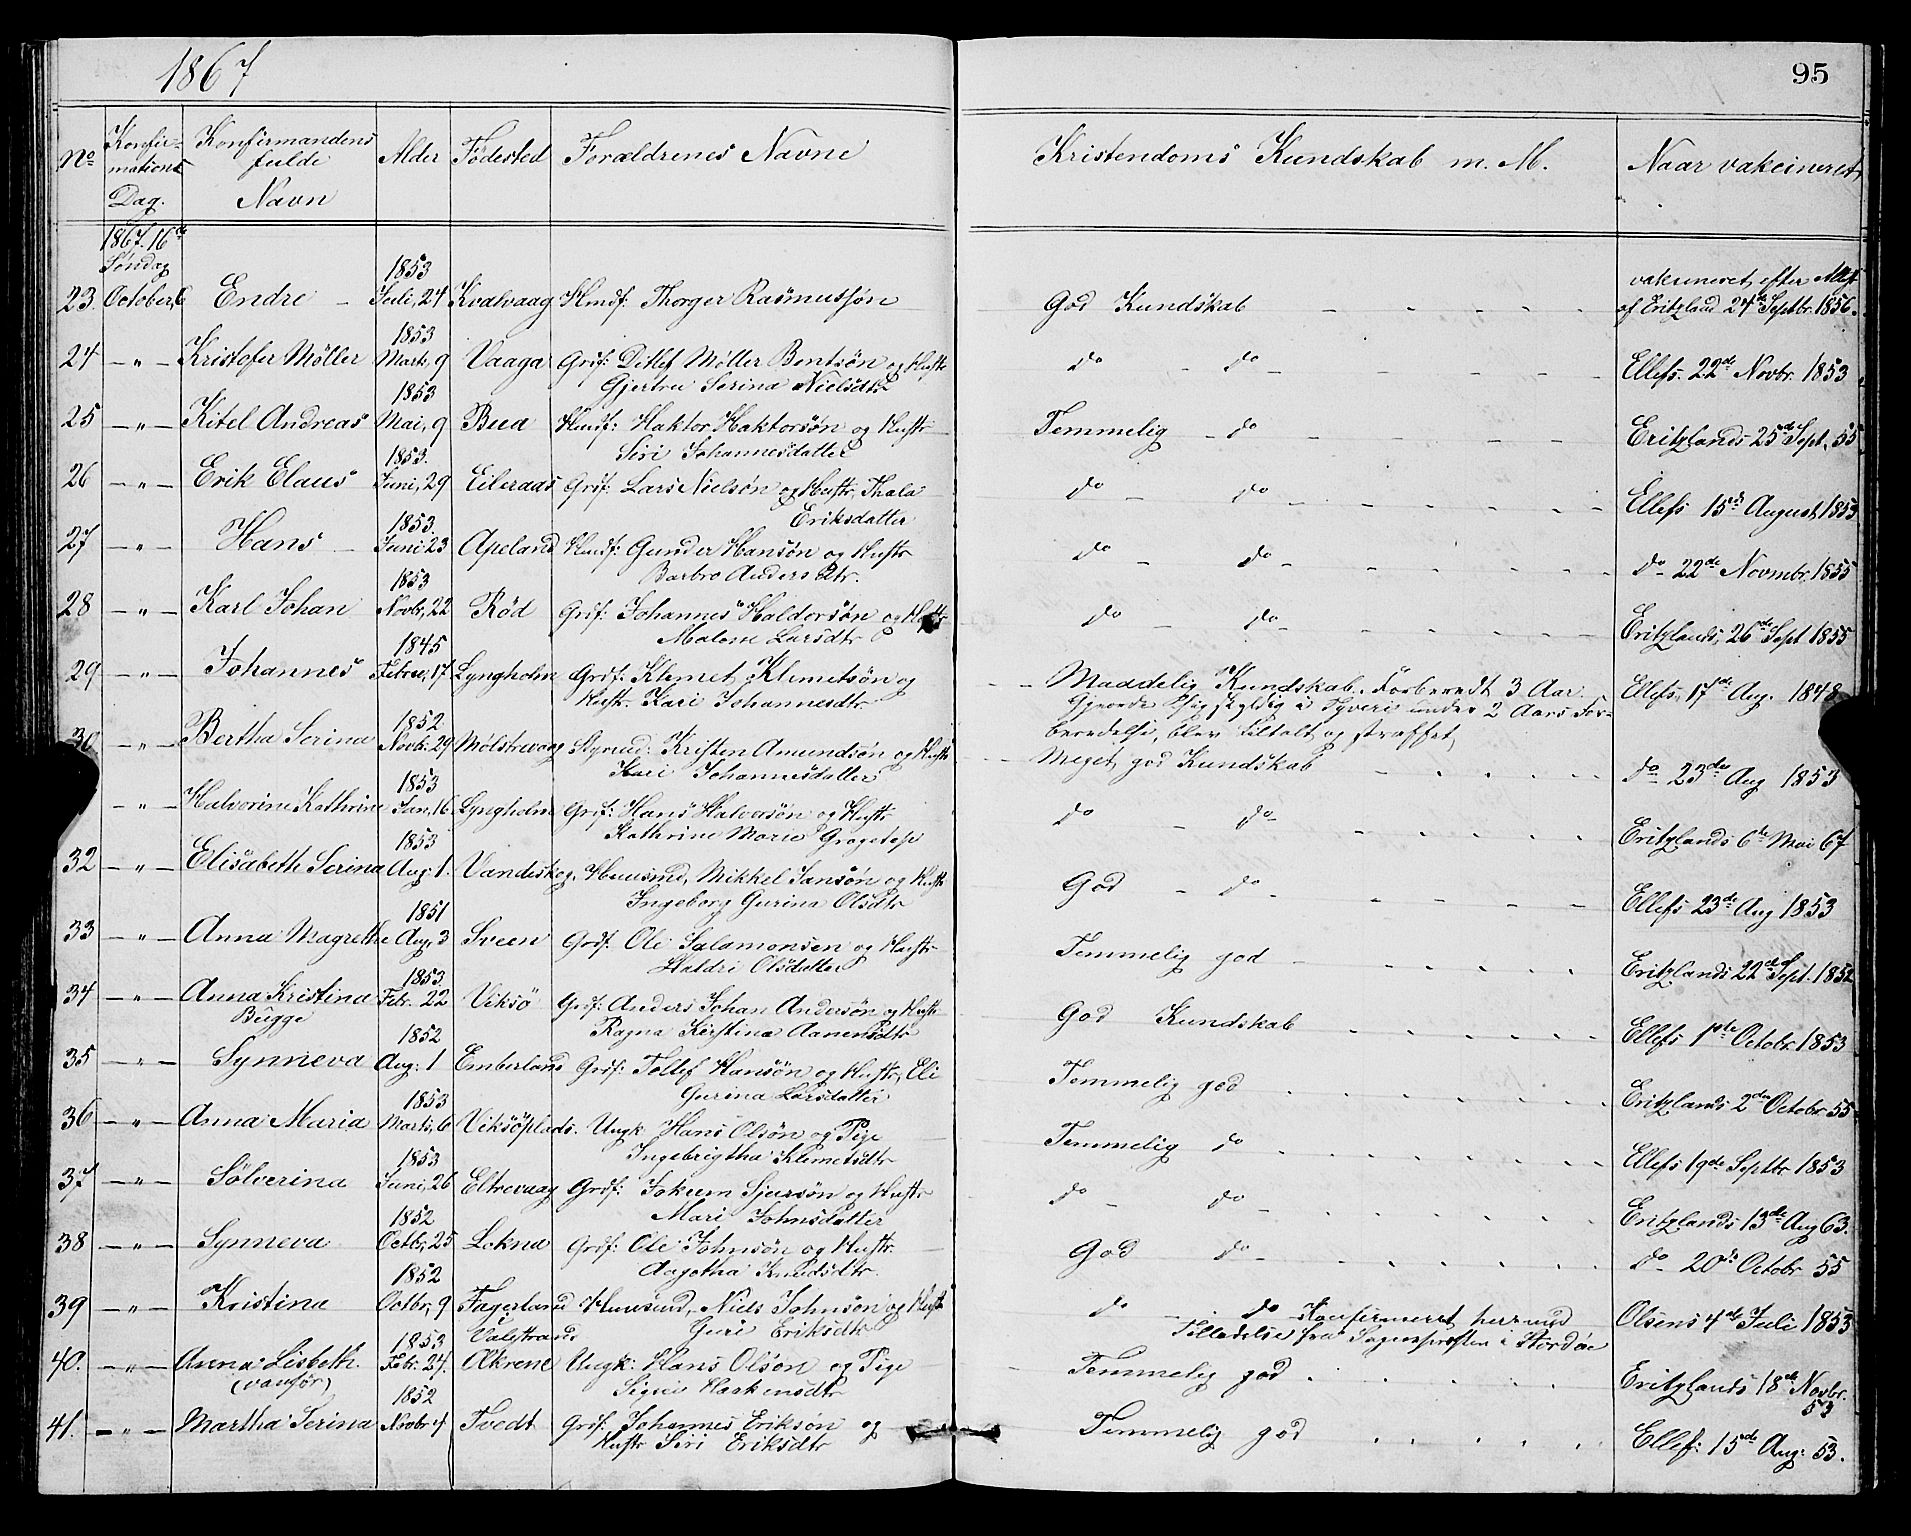 1867
95
No Konfir- mations Dag. Konfirmandens fulde Navn Alder Fødested Forældrenes Navne Kristendoms Kundskab m. M. Naar vakcineret
1867. 16de Søndag
1853 vakcineret efter Attest
23. October, 6 Endre - Juli, 24 Kvalvaag Hmdf: Thorger Rasmussøn God Kundskab af Eritzland 24de Septbr. 1856.
1853
24 - " - Kristofer Møller Marts, 9 Vaaga Grdf: Ditlef Møller Bentsøn og Hustr do - do - Ellefs. 22de Novbr. 1853
1853 Gjertru Serina Nielsdtr
25 - " - Kitel Andreas Mai, 9 Bua Hmdf: Haktor Haktorsøn og Hustr Temmelig - do - Eritzlands 25de Sept, 55
1853. Siri Johannesdatter
26 - " - Erik Elaus Juni, 29 Eileraas Grdf: Lars Nielsøn og Hustr, Thala do - do - Ellefs 15de August, 1853
1853. Eriksdatter
27 - " - Hans - Juni 23 Apeland Hmdf: Gunder Hansøn og Hustr do do - do 22de Novmbr. 1855
1853 Barbro Andersdtr.
28 - " - Karl Johan Novbr, 22 Rød Grdf: Johannes Haldorsøn og Hustr do - do - Eritzlands, 26de Sept 1855
1845 Malene Larsdtr
29 - " - Johannes Februr, 17 Lyngholm Grdf: Klemet Klemetsøn og - - Maadelig Kundskab. Forberedt 3 Aar. Ellefs, 17de Aug. 1848
Hustr. Kari Johannesdtr Gjorde sig skyldig i Tyveri under 2 Aars For-
1852 beredelse, blev tiltalt og straffet,
30 - " - Bertha Serina Novb. 29 Mølstrevaag Styrmd: Kristen Amundsøn og Hustr - - Meget god Kundskab do 23de Aug 1853
1853 Kari Johannesdatter
- " - Halvorine Kathrine Jan, 16 Lyngholm Grdf: Hans Halvorsøn og Hustr do - do Eritzlands 6te Mai 67
1853 Kathrine Marie
32 - " - Elisabeth Serina Aug: 1. Vandeskog, Huusmd, Mikkel Jansøn og Hustr God - do - Ellefs 23de Aug 1853
1851 Ingeborg Gurina Olsdtr
33 - " - Anna Magrethe Aug, 3 Sveen Grdf. Ole Salamonsen og Hustr Temmelig god - Eritzlands 22de Sept. 1852
1853. Haldri Olsdatter
34 - " - Anna Kristina Febr. 22 Viksø Grdf: Anders Johan Andersøn og Hustr God Kundskab Ellefs 1ste Octobr. 1853
Bugge 1852 Ragna Kirstina Aanensdtr
35 - " - Synneva Aug: 1 Emberland Grdf: Tollef Hansøn og Hustr, Eli Temmelig god Eritzlands 2de Octobr 55
1853 Gurina Larsdatter
36 - " - Anna Maria Marts, 6 Viksöplads. Ungk: Hans Olsøn og Pige Temmelig do Ellefs 19de Septbr. 1853
1853 Ingebrigtha Klemetsdtr
37 - " - Sølverina Juni, 26 Eltrevaag Grdf: Jokum Sjursøn og Hustr do - do - Eritzlands 13de Aug 63.
1852 Mari Johnsdatter
38 - " - Synneva Octbr, 25 Lokna Grdf: Ole Johnsøn og Hustr. God do - do 20de Octobr 55
1852 Aagotha Knudsdtr.
39 - " - Kristina Octbr, 9 Fagerland Huusmd, Niels Johnsøn og Hustr do - do Konfirmeret her med Olsens 4de Juli 1853
1853 Valestrand Guri Eriksdtr Tilladelse fra Sognepræsten i Stordøe
40. - " - Anna Lisbeth. Febr. 24. Økrene Ungk: Hans Olsøn og Pige - Temmelig god Eritzlands 18de Novbr.
(vanför) 1852 Sigri Haakensdtr 53
41. - " - Martha Serina Novbr 4 Tvedt Grdf: Johannes Eriksøn og Temmelig god Ellef: 15de Aug: 53.
Hustr Siri Eriksdtr